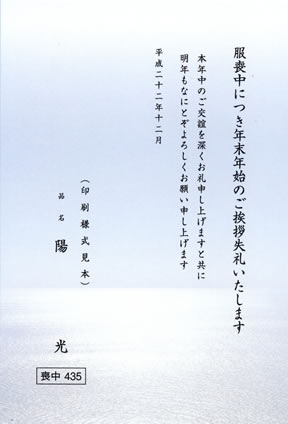 服喪中につき年末年始のご挨拶失礼いたします
本年中のご交誼を深くお礼申し上げますと共に
明年もなにとぞよろしくお願い申し上げます
平成二十二年十二月
(印刷様式見本)
品名 陽光
喪中 435